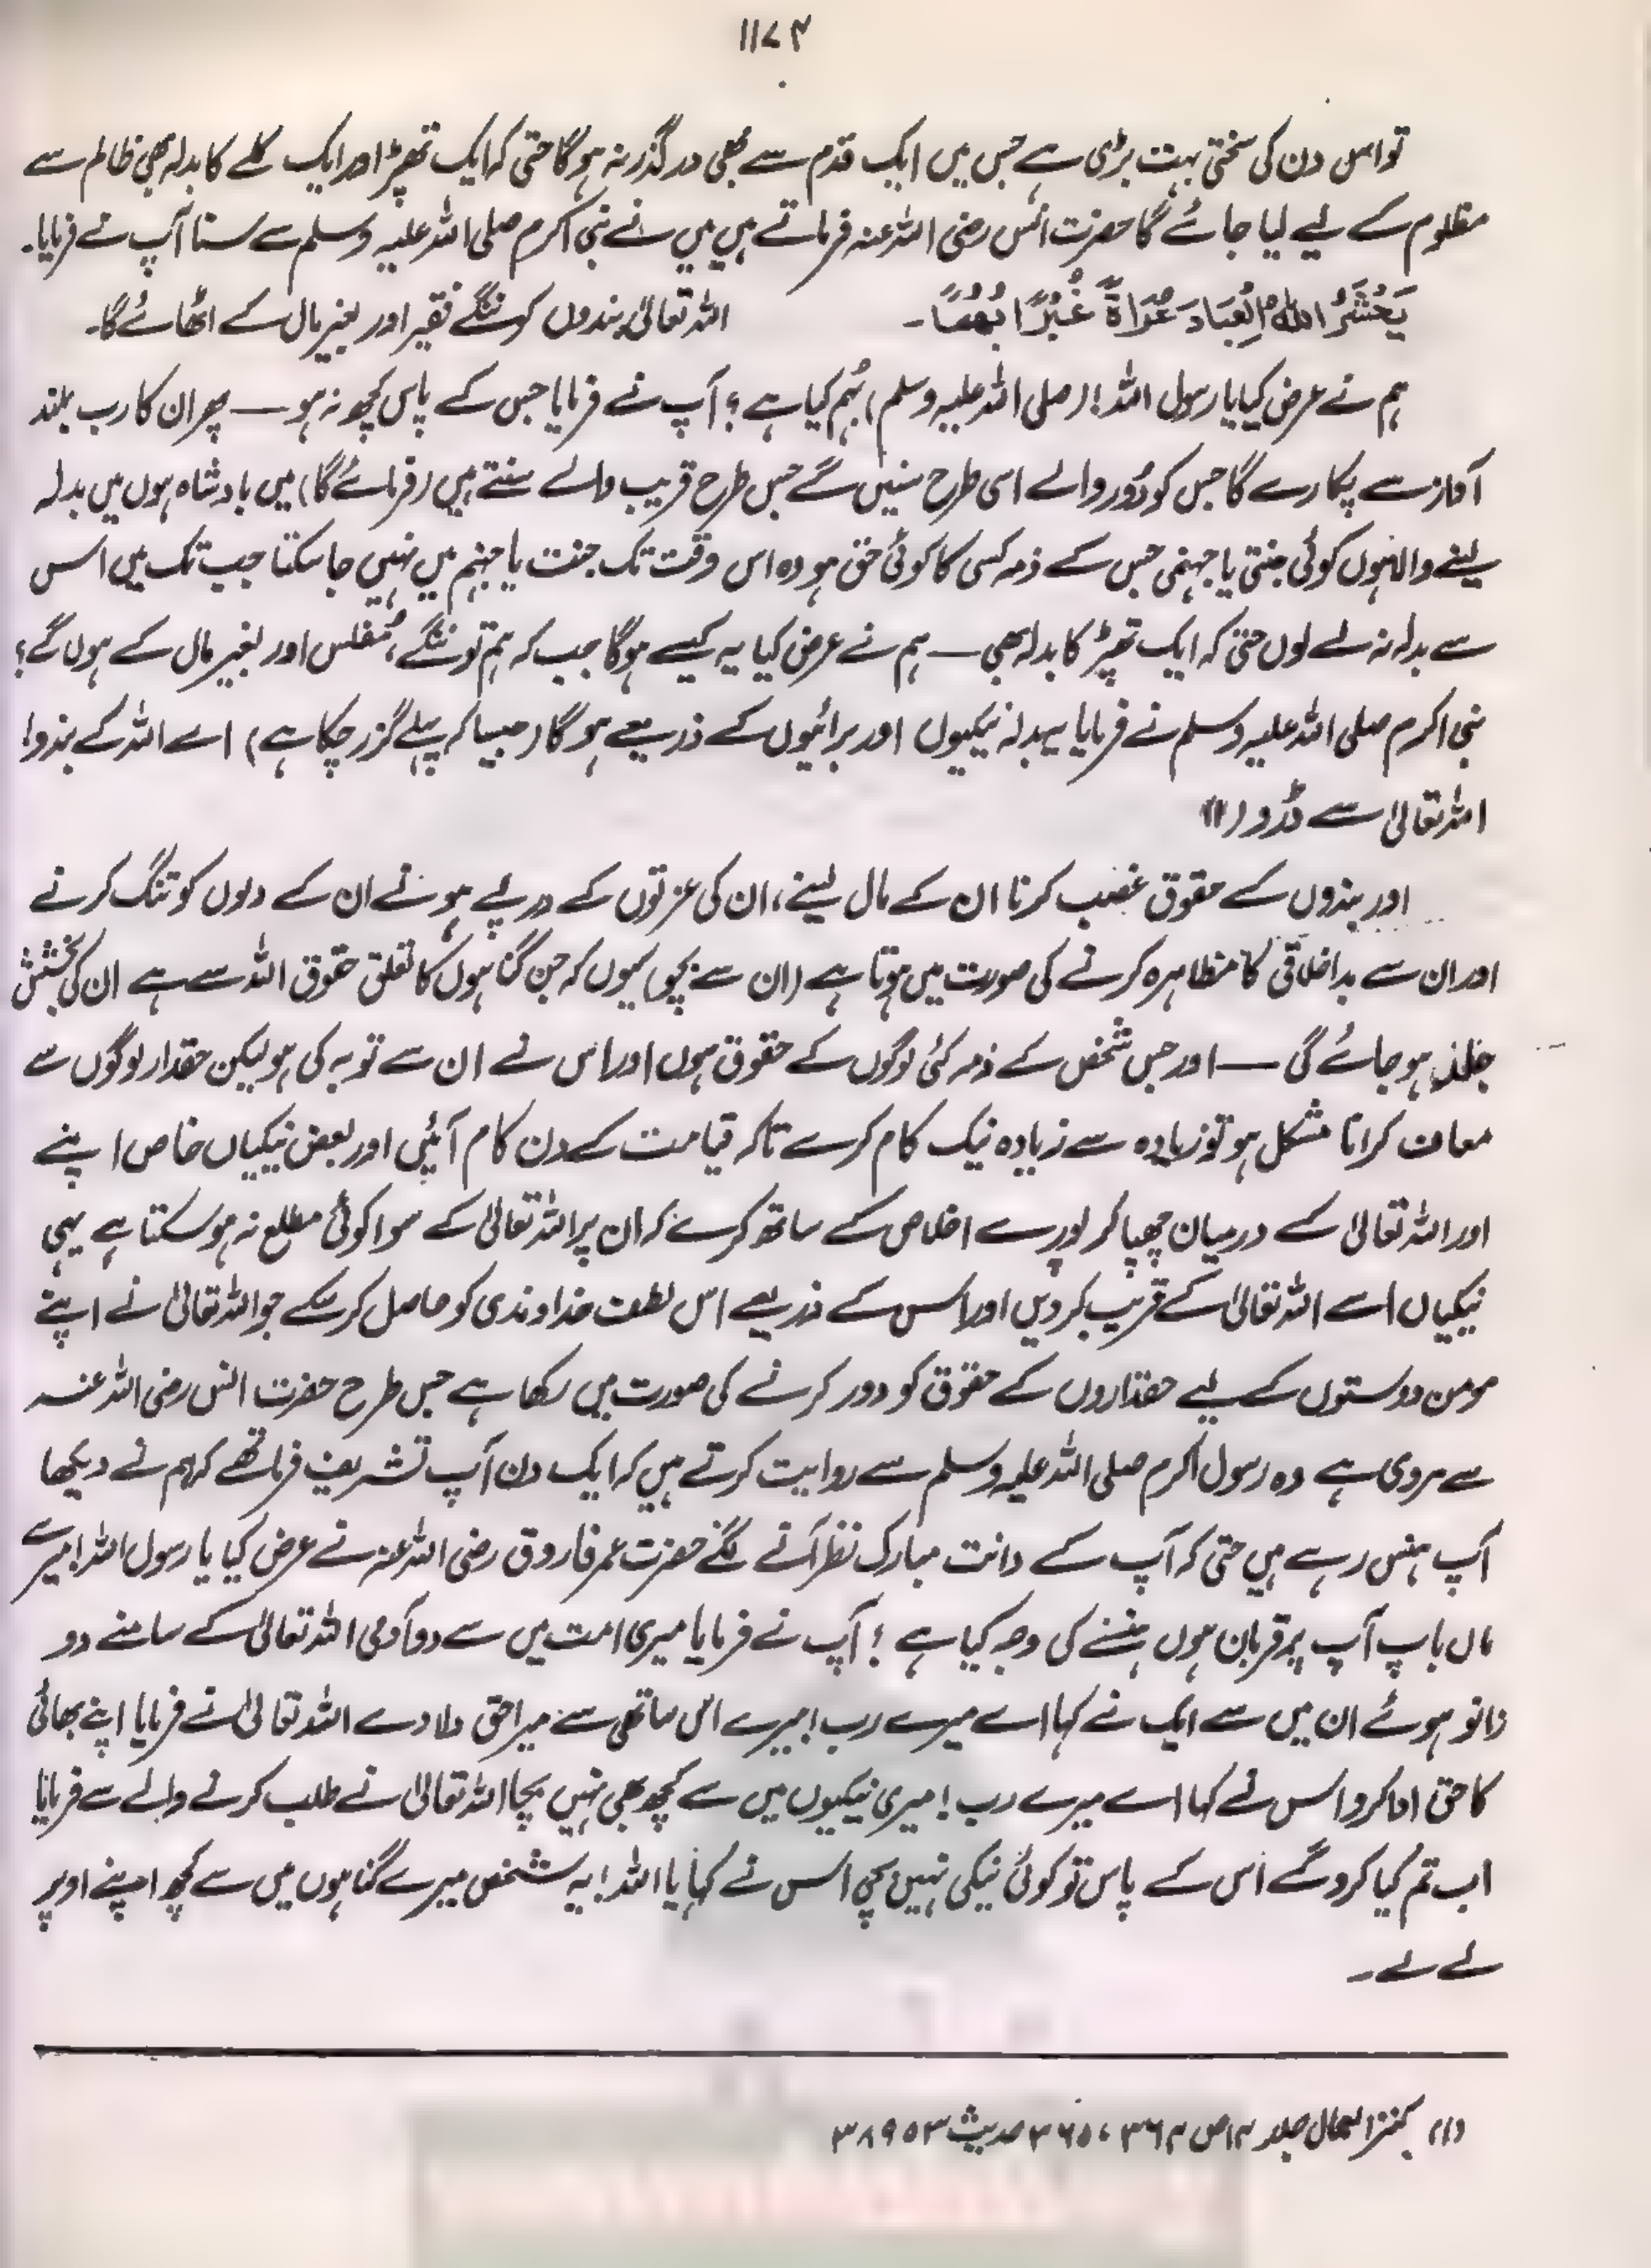 ۱۱۷۴
تو اس دن کی سختی بہت بڑی ہے جس میں ایک قدم سے بھی درگذر نہ ہوگا حتی کہ ایک تھپڑ اور ایک کلے کا بدلہ بھی ظالم سے
مظلوم کے لیے لیا جائے گا حضرت انس رضی اللہ عنہ فرماتے ہیں میں نے نبی اکرم صلی اللہ علیہ وسلم سے سنا آپ نے فرمایا۔
یَحْشَرُ اللهُ الْعِبَادَ عُرَاةً غُبْرًا بُهْمًا۔ اللہ تعالیٰ بندوں کو ننگے فقیر اور بغیر مال کے اٹھائے گا۔
ہم نے عرض کیا یا رسول اللہ! (صلی اللہ علیہ وسلم) بُہم کیا ہے؟ آپ نے فرمایا جس کے پاس کچھ نہ ہو — پھر ان کا رب بلند
آواز سے پکارے گا جس کو دُور والے اسی طرح سنیں گے جس طرح قریب والے سنتے ہیں (فرمائے گا) میں بادشاہ ہوں میں بدلہ
لینے والا ہوں کوئی جنتی یا جہنمی جس کے ذمہ کسی کا کوئی حق ہو وہ اس وقت تک جنت یا جہنم میں نہیں جا سکتا جب تک میں اس
سے بدلہ نہ لے لوں حتی کہ ایک تھپڑ کا بدلہ بھی — ہم نے عرض کیا یہ کیسے ہوگا جب کہ ہم تو ننگے، مُفلس اور بغیر مال کے ہوں گے؟
نبی اکرم صلی اللہ علیہ وسلم نے فرمایا یہ بدلہ نیکیوں اور برائیوں کے ذریعے ہوگا (جیسا کہ پہلے گزر چکا ہے) اے اللہ کے بندو!
اللہ تعالیٰ سے ڈرو (۱)
اور بندوں کے حقوق غضب کرنا ان کے مال لینے، ان کی عزتوں کے درپے ہونے ان کے دلوں کو تنگ کرنے
اور ان سے بداخلاقی کا مظاہرہ کرنے کی صورت میں ہوتا ہے (ان سے بچو) کیوں کہ جن گناہوں کا تعلق حقوق اللہ سے ہے ان کی بخشش
جلد ہو جائے گی — اور جس شخص کے ذمہ کئی لوگوں کے حقوق ہوں اور اس نے ان سے توبہ کی ہو لیکن حقدار لوگوں سے
معاف کرانا مشکل ہو تو زیادہ سے زیادہ نیک کام کرے تاکہ قیامت کے دن کام آئیں اور بعض نیکیاں خاص اپنے
اور اللہ تعالیٰ کے درمیان چھپا کر پورے اخلاص کے ساتھ کرے کہ ان پر اللہ تعالیٰ کے سوا کوئی مطلع نہ ہو سکتا ہے یہی
نیکیاں اسے اللہ تعالیٰ کے قریب کر دیں اور اس کے ذریعے اس لطف خداوندی کو حاصل کر سکے جو اللہ تعالیٰ نے اپنے
مومن دوستوں کے لیے حقداروں کے حقوق کو دور کرنے کی صورت میں رکھا ہے جس طرح حضرت انس رضی اللہ عنہ
سے مروی ہے وہ رسول اکرم صلی اللہ علیہ وسلم سے روایت کرتے ہیں کہ ایک دن آپ تشریف فرما تھے کہ ہم نے دیکھا
آپ ہنس رہے ہیں حتی کہ آپ کے دانت مبارک نظر آنے لگے حضرت عمر فاروق رضی اللہ عنہ نے عرض کیا یا رسول اللہ! میرے
ماں باپ آپ پر قربان ہوں ہنسنے کی وجہ کیا ہے؟ آپ نے فرمایا میری امت میں سے دو آدمی اللہ تعالیٰ کے سامنے دو
زانو ہوئے ان میں سے ایک نے کہا اے میرے رب! میرے اس ساتھی سے میرا حق دلا دے اللہ تعالیٰ نے فرمایا اپنے بھائی
کا حق ادا کرو اس نے کہا اے میرے رب! میری نیکیوں میں سے کچھ بھی نہیں بچا اللہ تعالیٰ نے طلب کرنے والے سے فرمایا
اب تم کیا کرو گے اس کے پاس تو کوئی نیکی نہیں بچی اس نے کہا یا اللہ! یہ شخص میرے گناہوں میں سے کچھ اپنے اوپر
لے لے۔
(۱) کنز العمال جلد ۱۴ ص ۳۶۴، ۳۶۵ حدیث ۳۸۹۵۳